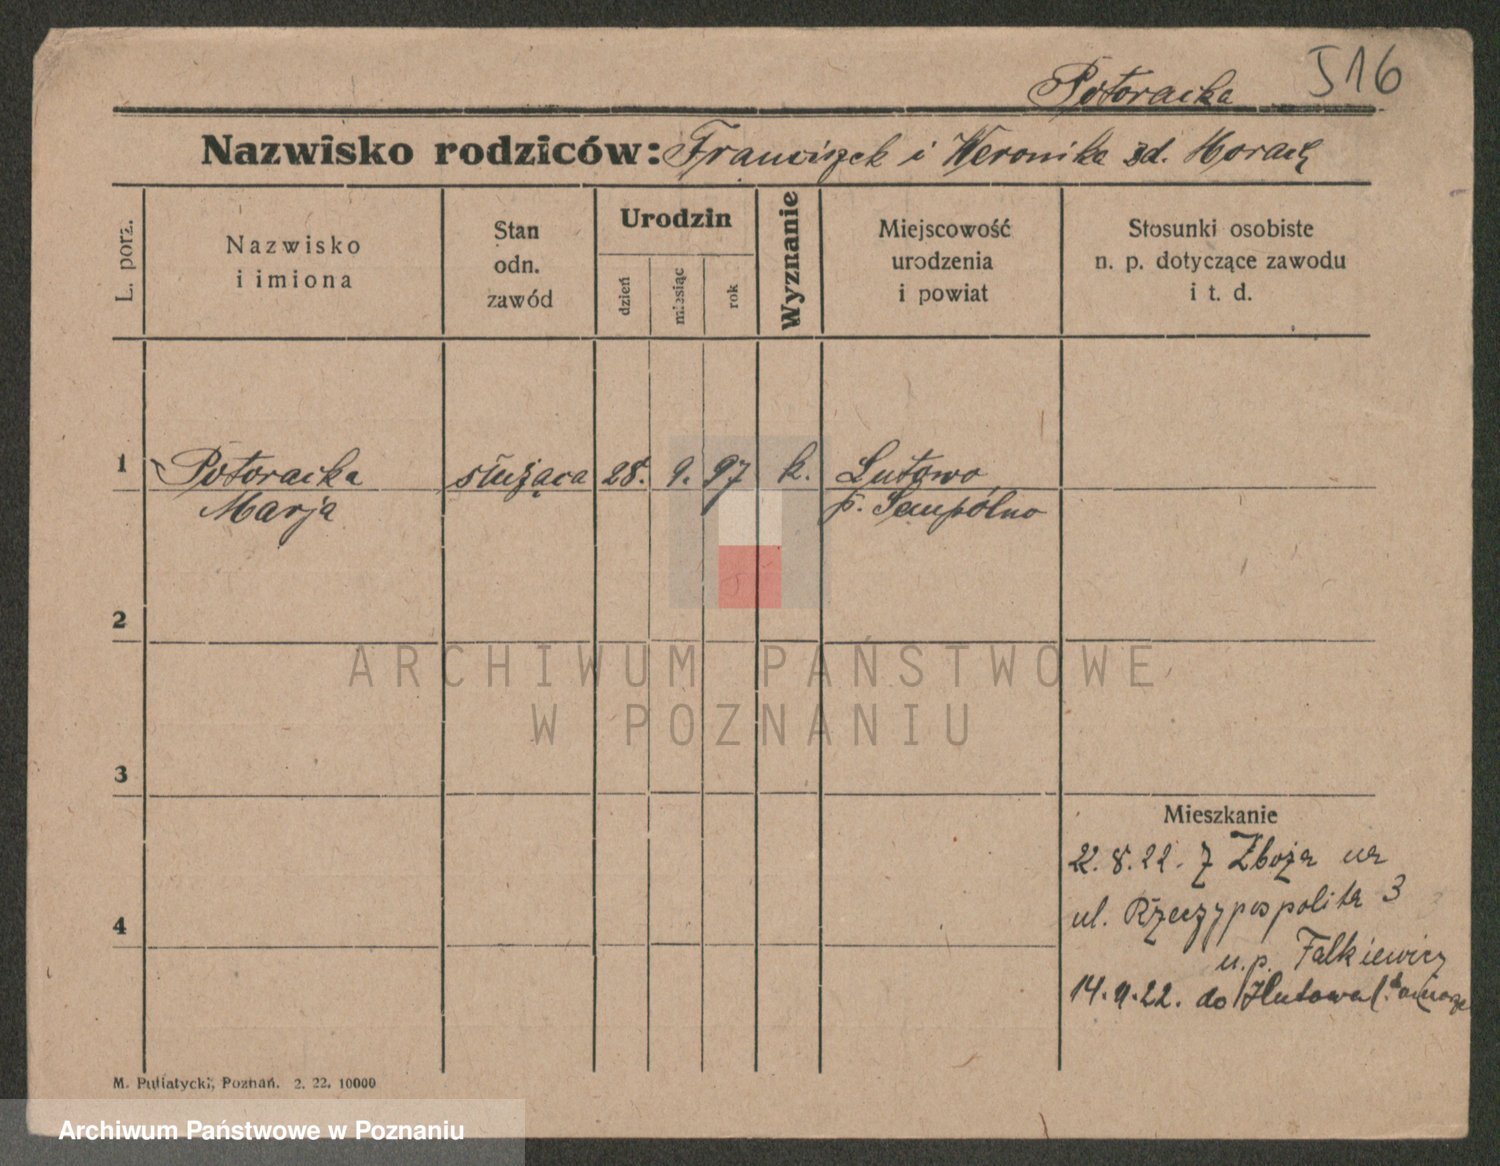 516
Potoracka
Nazwisko rodziców: Franciszek i Weronika zd. Horacy
L. porz.
Nazwisko
i imiona
Stan
odn.
zawód
Urodzin
dzień
miesiąc
rok
Wyznanie
Miejscowość
urodzenia
i powiat
Stosunki osobiste
n. p. dotyczące zawodu
i t. d.
1 Potoracka służąca 28. 9. 97 k. Lutowo
Marja p. Sempólno
2
3
4
Mieszkanie
22. 8. 22. z Zboża na
ul. Rzeczypospolita 3
u. p. Falkiewicz
14. 9. 22. do
M. Putiatycki, Poznań. 2. 22. 10000
ARCHIWUM PAŃSTWOWE
W POZNANIU
Archiwum Państwowe w Poznaniu